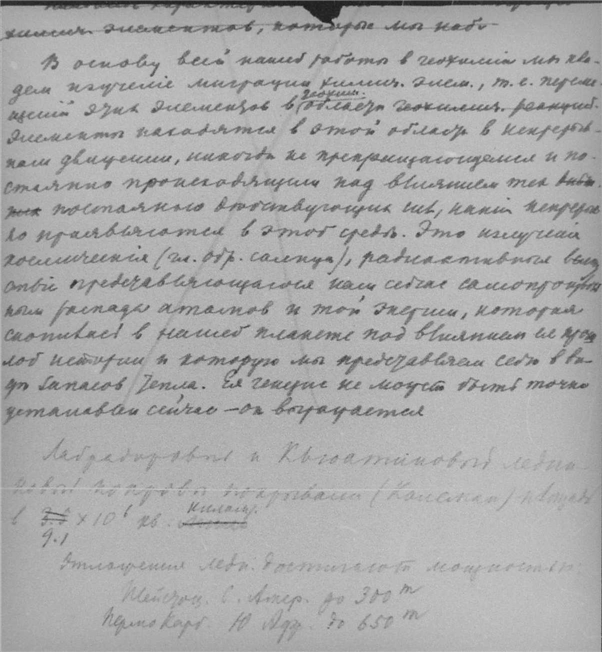 химич. элементов, которые мы наб-
В основу всей нашей работы в геохимии мы кла-
дем изучение миграции химич. элем., т. е. переме-
щений этих элементов в геохим. области геохимич. реакций.
Элементы находятся в этой области в непрерыв-
ном движении, никогда не прекращающемся и по-
стоянно происходящим под влиянием тех
постоянно действующих сил, какие непрерыв-
но проявляются в этой среде. Это излучения
космические (гл. обр. солнца), радиоактивные
представляющегося нам сейчас самопроизволь
ным распада атомов и той энергии, которая
скопилась в нашей планете под влиянием ее прош
лой истории и которую мы представляем себе в ви-
де запасов тепла. Ея генезис не может быть точно
установлен сейчас – он
Лабрадоровый и Кьюатиновый ледни-
ковый покровы покрывали (Колеман) площадь
в 3.6 × 10⁶ кв. килом.
9.1
Отложения ледн. достигают мощностью:
С. Амер. до 300 m
Пермокарб. Ю. Афр. до 650 m